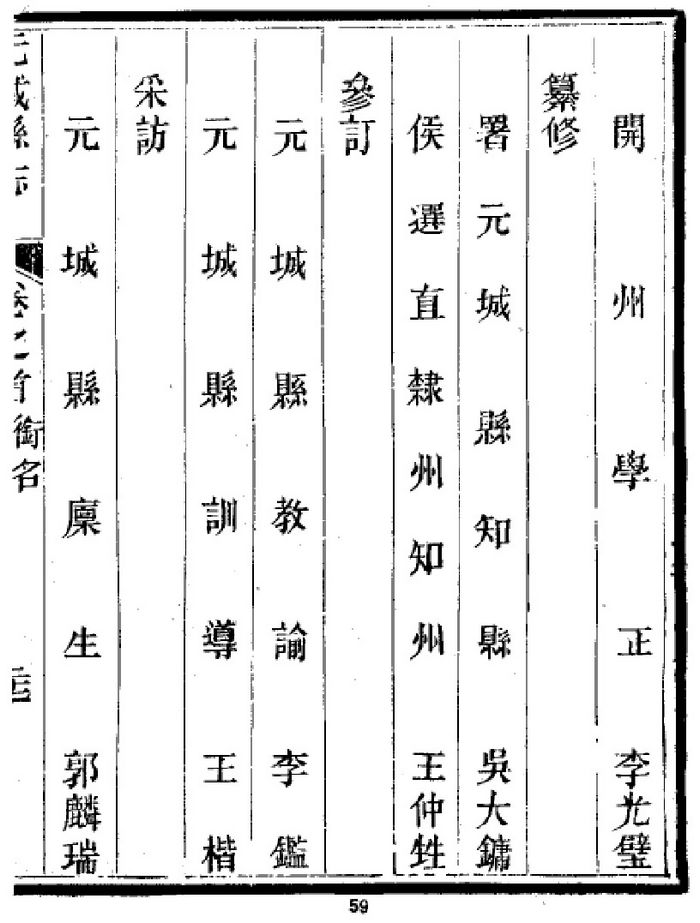 開州學正李光璧
纂修
署元城縣知縣吳大鏞
侯選直隸州知州王仲甡
參訂
元城縣教諭李鑑
元城縣訓導王楷
采訪
元城縣廩生郭麟瑞
元城縣志
卷之首銜名
59